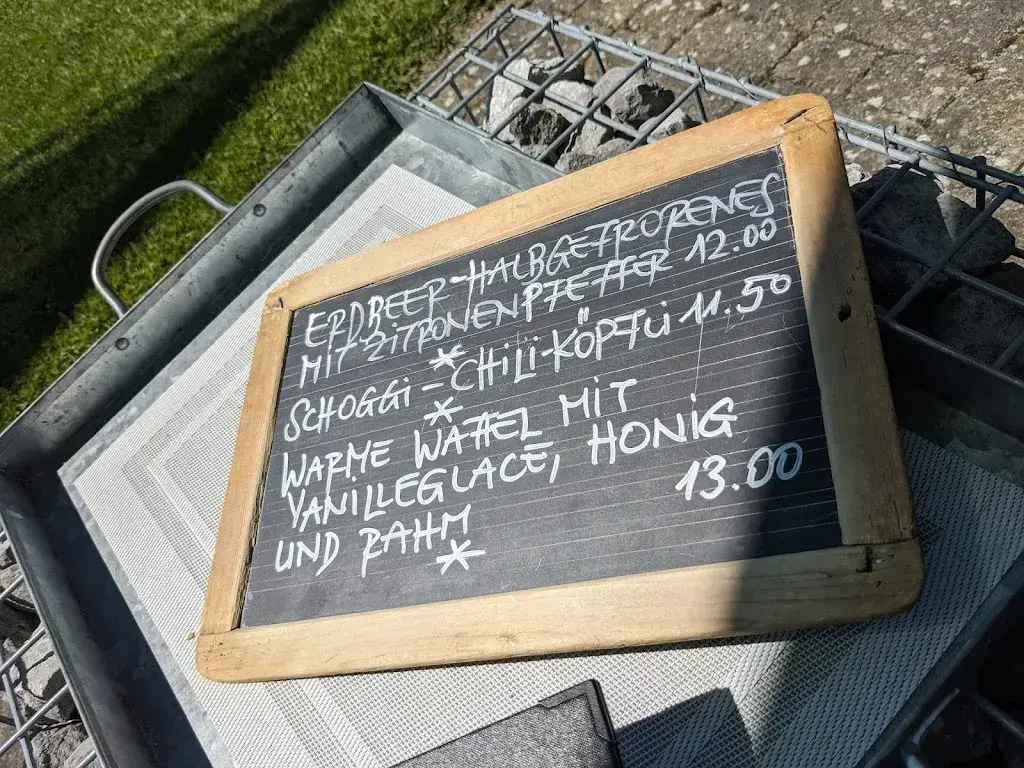 ERDBEER-HALBGEFRORENES
MIT ZITRONENPFEFFER 12.00
*
SCHOGGI-CHILI-KÖPFLI 11.50
*
WARME WAFFEL MIT
VANILLEGLACE, HONIG
UND RAHM 13.00
*